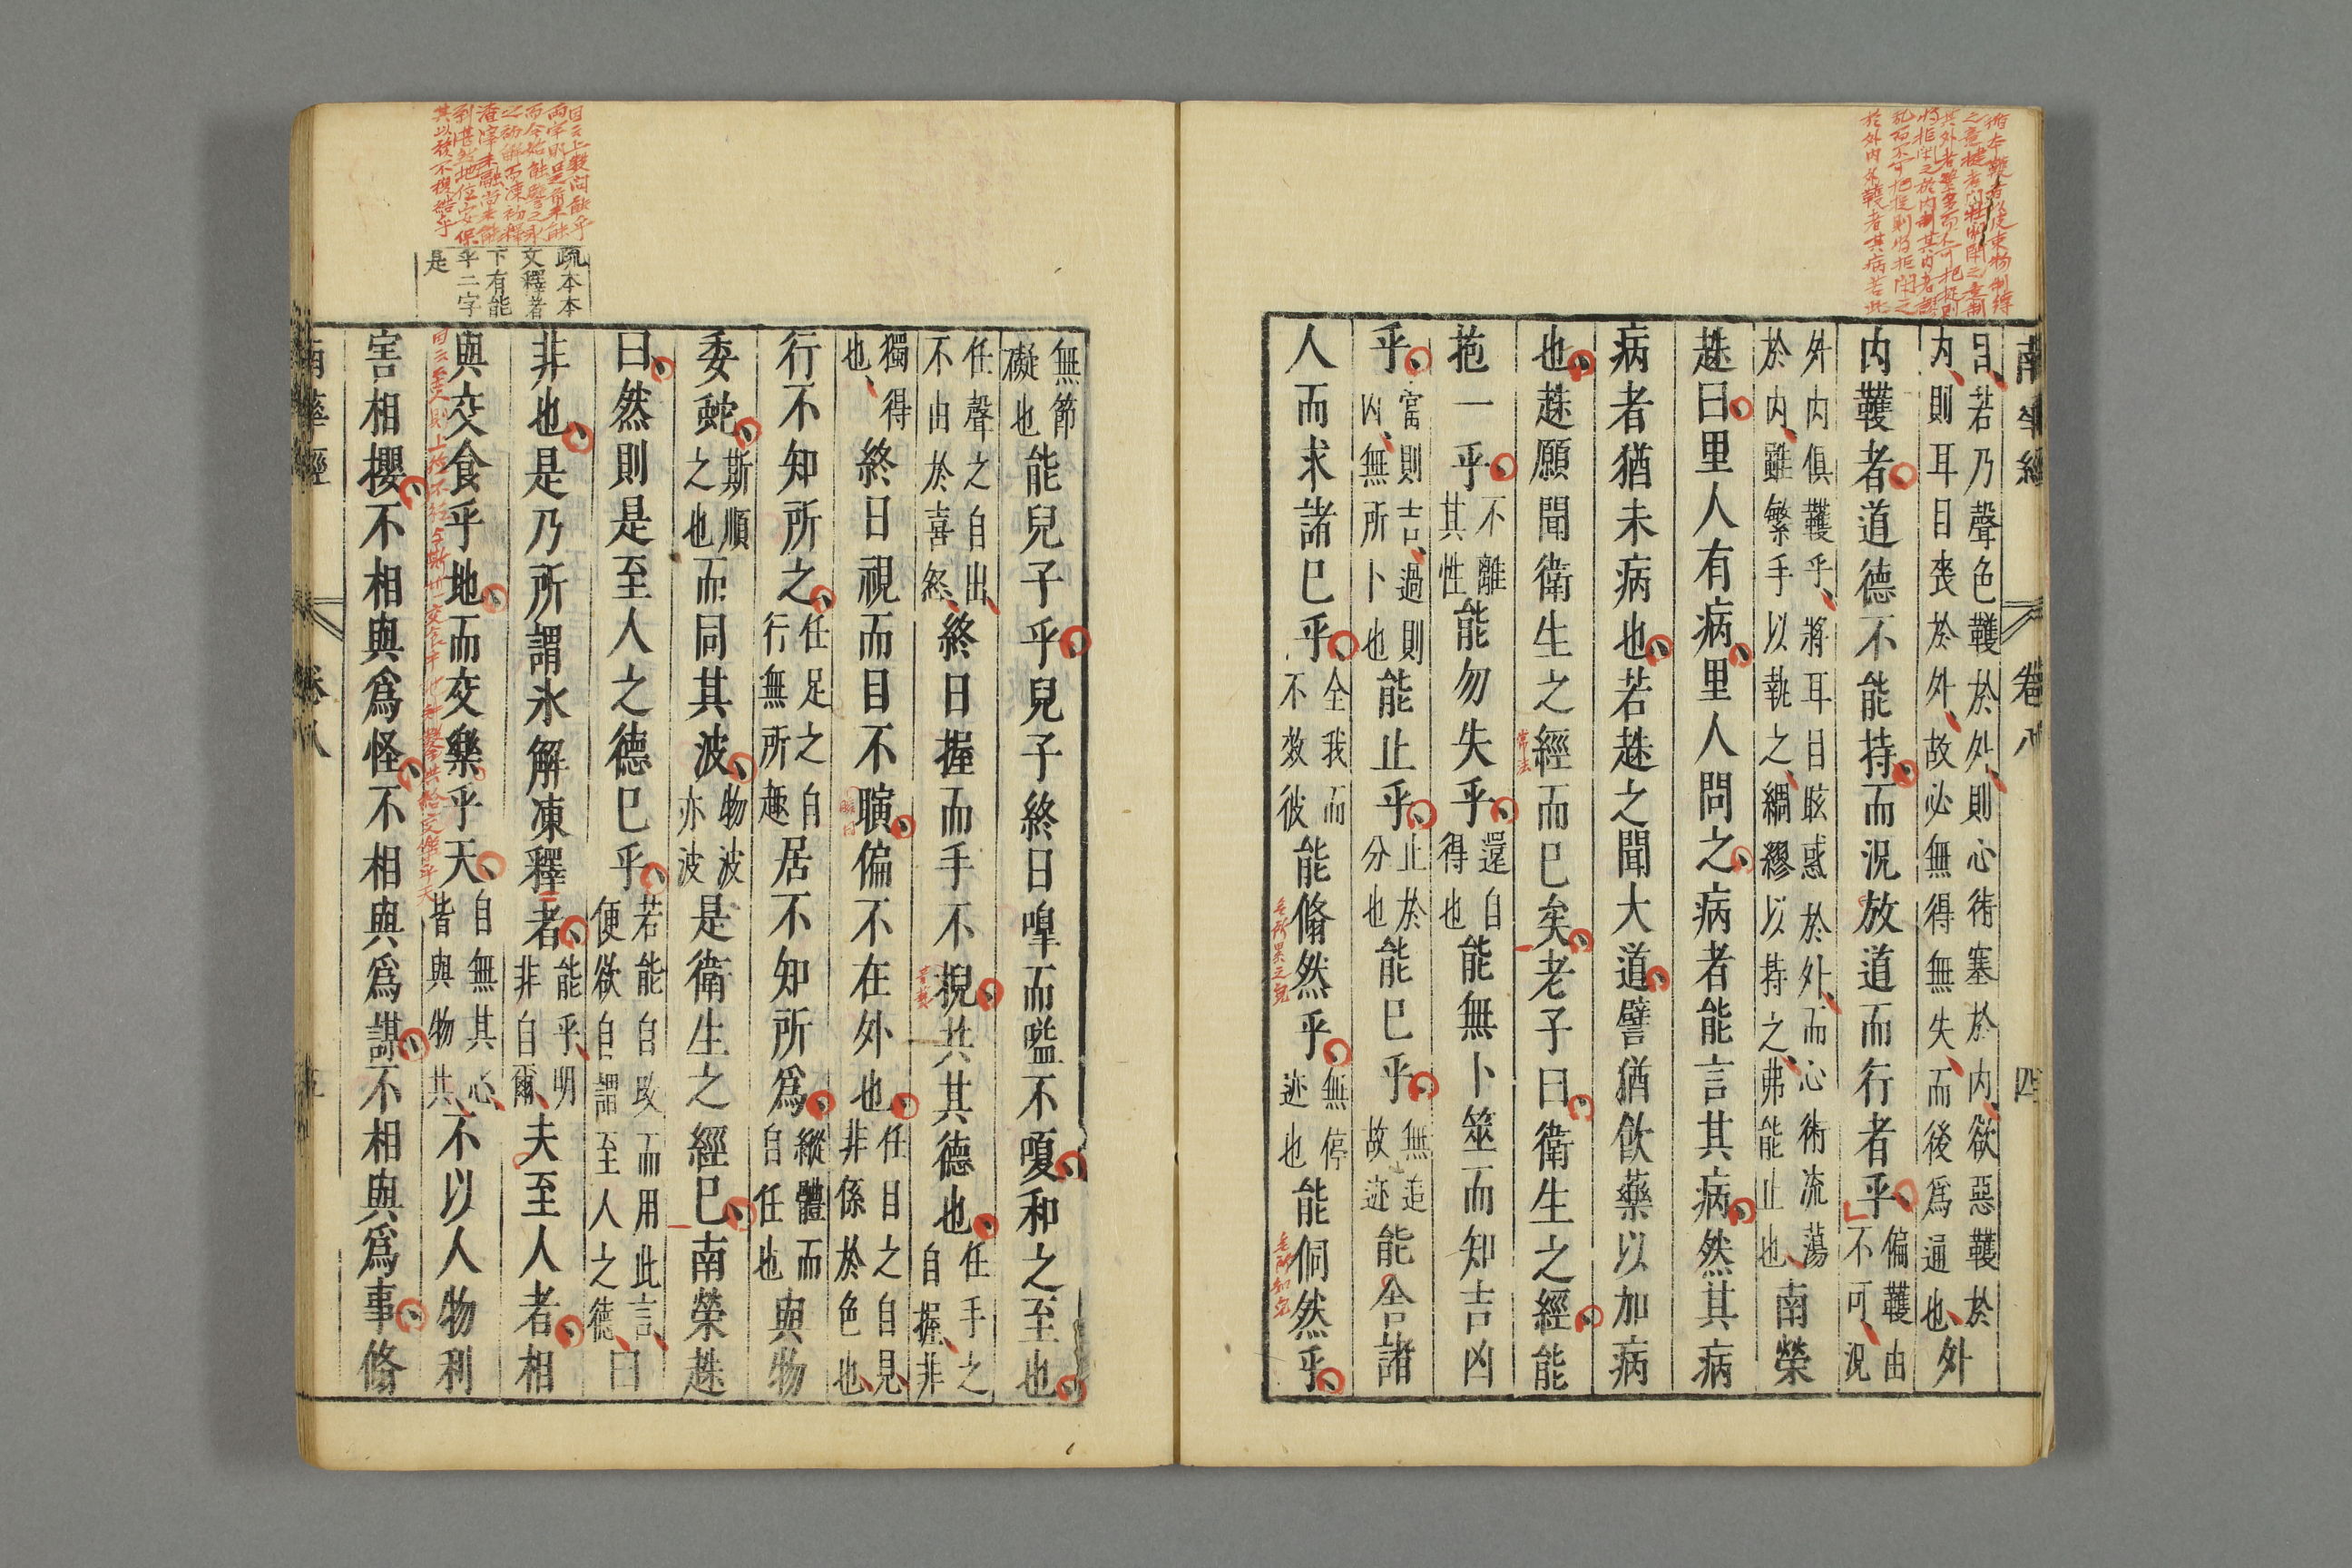 南華經 卷八 四
目若乃聲色鞿於外則心術塞於內欲惡鞿於
內則耳目喪於外故必無得無失而後爲通也外
內鞿者道德不能持而況放道而行者乎偏鞿由不可況
外內俱鞿乎將耳目眩惑於外而心術流蕩
於內雖繁手以執之綢繆以持之弗能止也南榮
趎曰里人有病里人問之病者能言其病然其病
病者猶未病也若趎之聞大道譬猶飲藥以加病
也趎願聞衛生之經而已矣老子曰衛生之經能
常法
抱一乎不離其性能勿失乎還自得也能無卜筮而知吉凶
乎當則吉過則凶無所卜也能止乎止於分也能已乎無追故迹能舍諸
人而求諸已乎全我而不效彼能翛然乎無停迹也能侗然乎
無所累之皃
無所知皃
無節礙也能兒子乎兒子終日嘷而嗌不嗄和之至也
任聲之自出不由於喜怒終日握而手不掜共其德也任手之自握非
獨得也終日視而目不瞚偏不在外也任目之自見非係於色也
行不知所之任足之自行無所趣居不知所爲縱體而自任也與物
委蛇斯順之也而同其波物波亦波是衛生之經已南榮趎
曰然則是至人之德已乎若能自改而用此言便欲自謂至人之德曰
非也是乃所謂氷解凍釋者能乎明非自爾夫至人者相
與交食乎地而交樂乎天自無其心皆與物共不以人物利
害相攖不相與爲怪不相與爲謀不相與爲事翛
疏本本
文釋者
下有能
乎二字
是
南華經 卷八